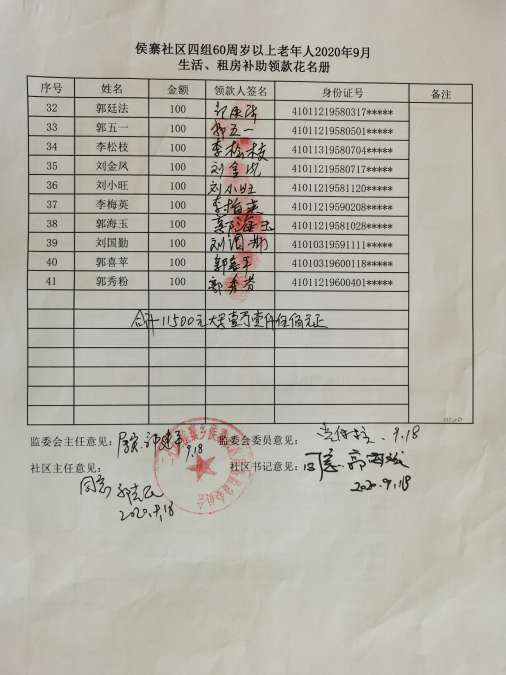 侯寨社区四组60周岁以上老年人2020年9月
生活、租房补助领款花名册
序号 姓名 金额 领款人签名 身份证号 备注
32 郭廷法 100 41011219580317*****
33 郭五一 100 郭五一 41011219580501*****
34 李松枝 100 李松枝 41011319580704*****
35 刘金凤 100 刘金凤 41011219580717*****
36 刘小旺 100 刘小旺 41011219581120*****
37 李梅英 100 李梅英 41011219590208*****
38 郭海玉 100 郭海玉 41011219581028*****
39 刘国勤 100 刘国勤 41010319591111*****
40 郭喜苹 100 41010319600118*****
41 郭秀粉 100 郭秀 41011219600401*****
合计11500元大写壹万壹仟伍佰元正
监委会主任意见: 9.18 监委会委员意见: 9.18
社区主任意见: 社区书记意见: 同意
同意
2020.9.18 2020.9.18